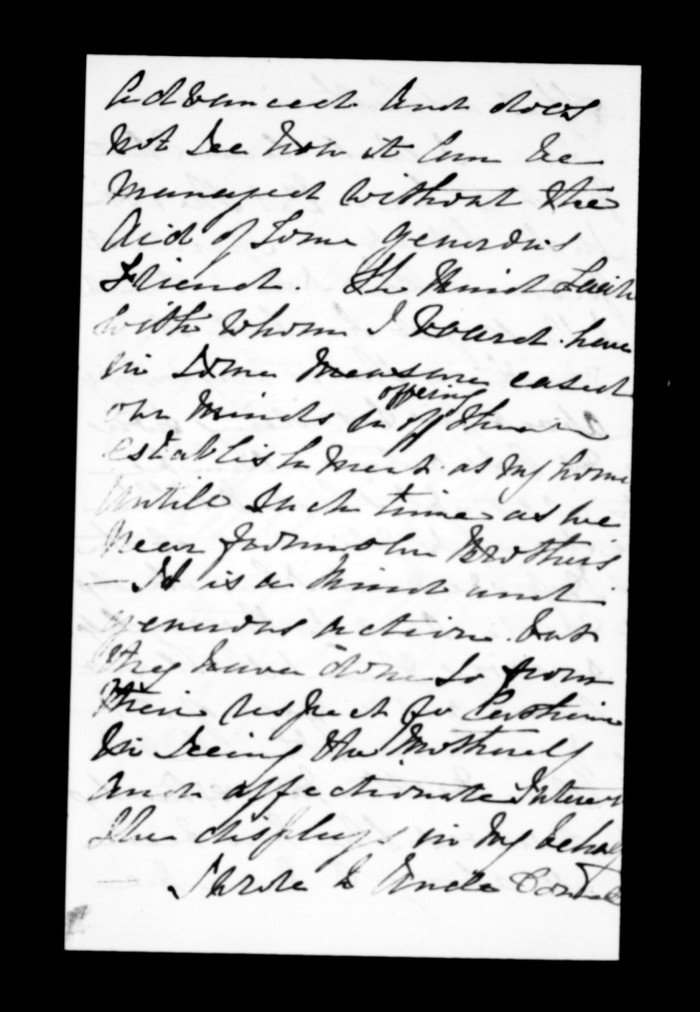 advanced and does
not see how it can be
managed without the
Aid of some generous
Friend. The kind
with whom I board have
in some measure eased
our minds in offering
establishment as my home
until such time as we
hear from our Brothers
— It is a kind and
generous action but
they have done so from
their respect for
in seeing the motherly
and affectionate Interest
she displays in my behalf
— I wrote to Uncle